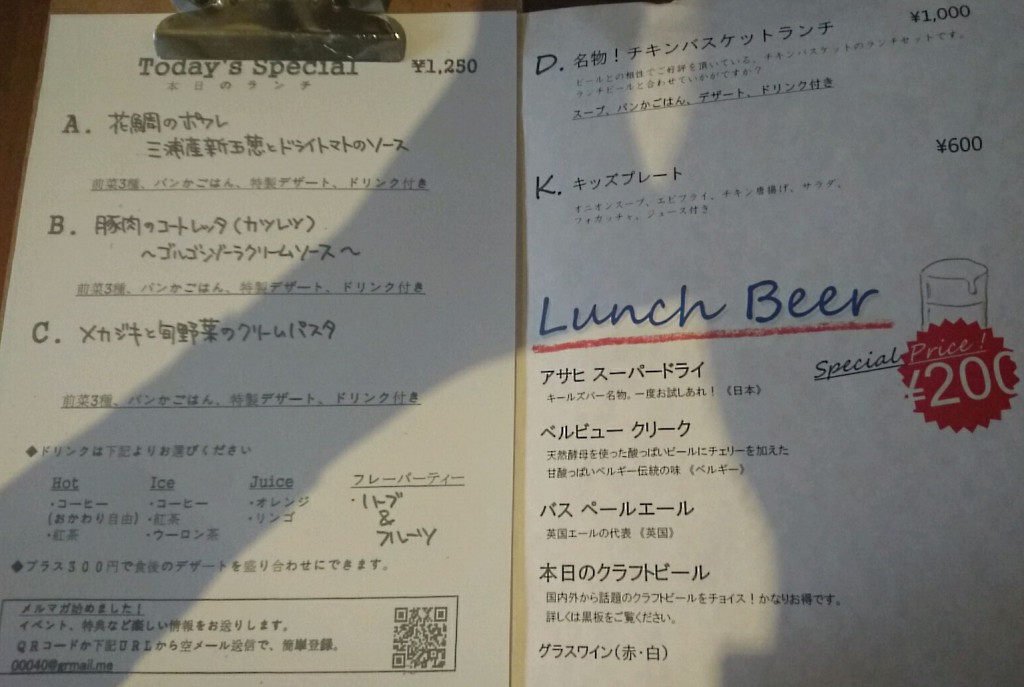 Today's Special ¥1,250
本日のランチ
A. 花鯛のポワレ
三浦産新玉葱とドライトマトのソース
前菜3種、パンかごはん、特製デザート、ドリンク付き
B. 豚肉のコートレッタ(カツレツ)
～ゴルゴンゾーラクリームソース～
前菜3種、パンかごはん、特製デザート、ドリンク付き
C. メカジキと旬野菜のクリームパスタ
前菜3種、パンかごはん、特製デザート、ドリンク付き
◆ドリンクは下記よりお選びください
Hot Ice Juice フレーバーティー
・コーヒー ・コーヒー ・オレンジ ・リトブ
(おかわり自由) ・紅茶 ・リンゴ &
・紅茶 ・ウーロン茶 フルーツ
◆プラス300円で食後のデザートを盛り合わせにできます。
メルマガ始めました!
イベント、特典など楽しい情報をお送りします。
QRコードか下記URLから空メール送信で、簡単登録。
00040@grmail.me
¥1,000
D. 名物！チキンバスケットランチ
ビールとの相性でご好評を頂いている、チキンバスケットのランチセットです。
ランチビールと合わせていかがですか？
スープ、パンかごはん、デザート、ドリンク付き
¥600
K. キッズプレート
オニオンスープ、エビフライ、チキン唐揚げ、サラダ、
フォカッチャ、ジュース付き
Lunch Beer
Special Price !
¥200
アサヒ スーパードライ
キールズバー名物。一度お試しあれ！《日本》
ベルビュー クリーク
天然酵母を使った酸っぱいビールにチェリーを加えた
甘酸っぱいベルギー伝統の味《ベルギー》
バス ペールエール
英国エールの代表《英国》
本日のクラフトビール
国内外から話題のクラフトビールをチョイス！かなりお得です。
詳しくは黒板をご覧ください。
グラスワイン(赤・白)